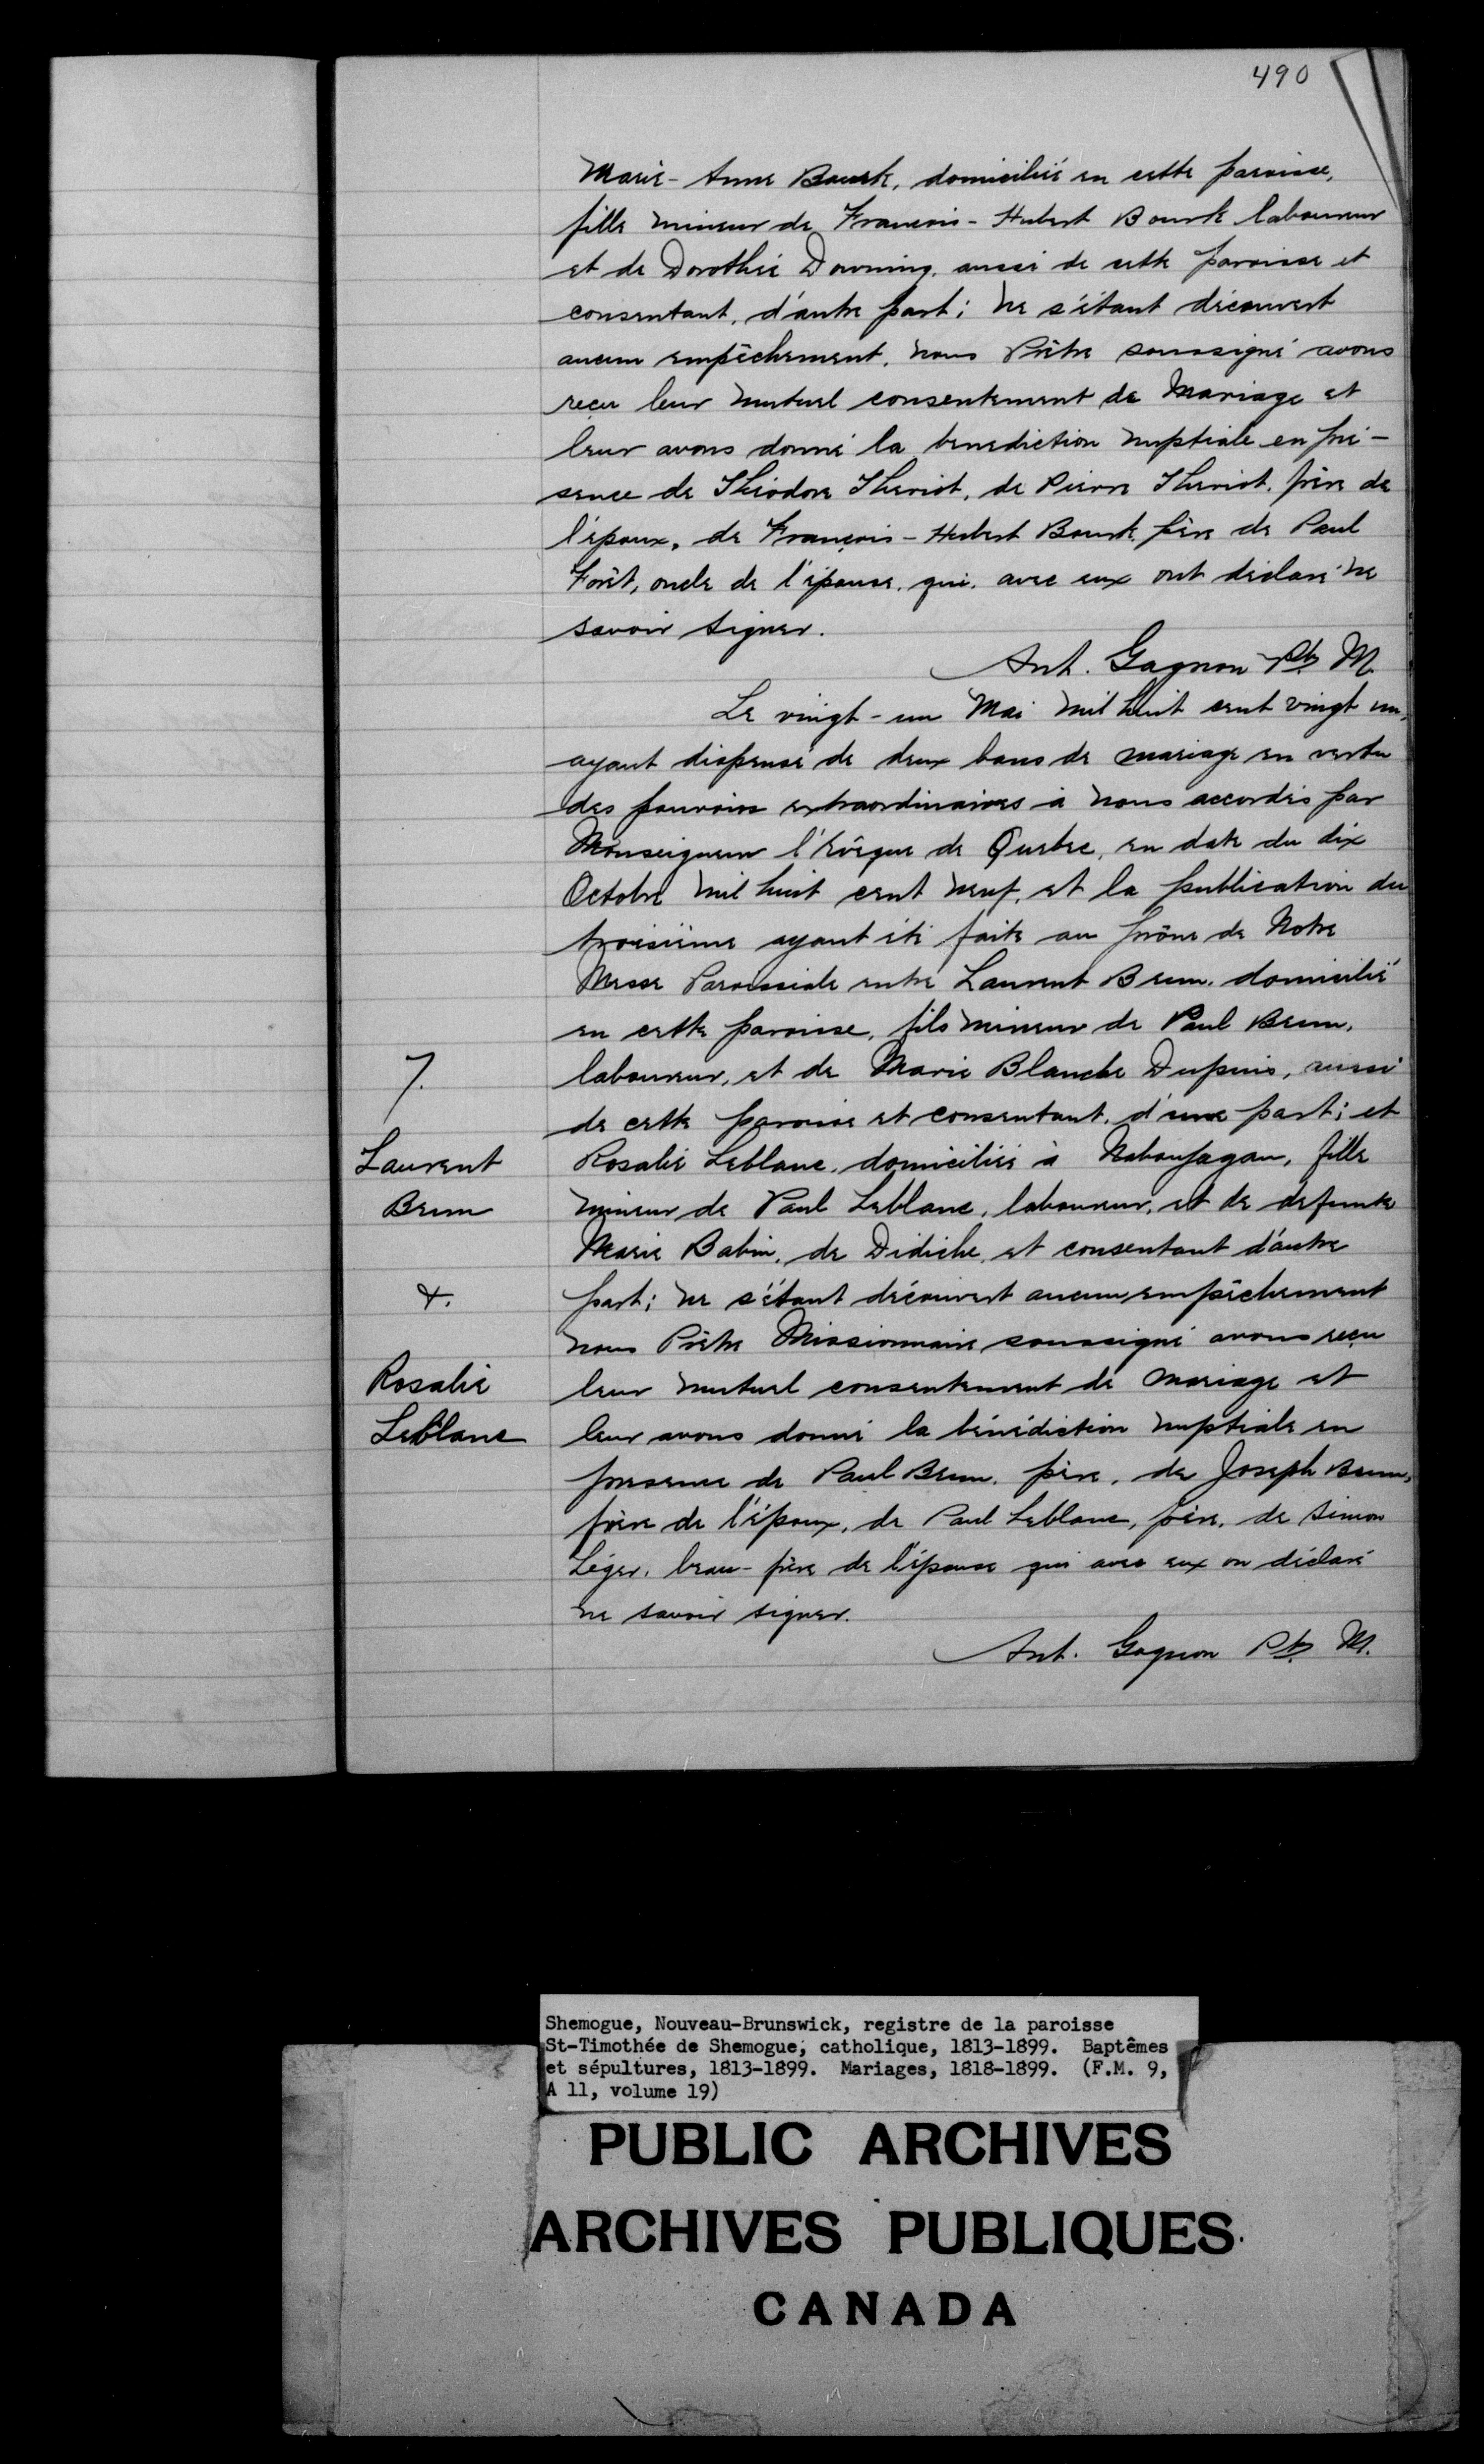 490
Marie-Anne Bourk, domiciliée en cette paroisse,
fille mineur de François-Hubert Bourk laboureur
et de Dorothée Downing, aussi de cette paroisse et
consentant, d'autre part; ne s'étant découvert
aucun empêchement, nous Prêtre soussigné avons
reçu leur mutuel consentement de Mariage et
leur avons donné la benediction nuptiale en pré-
sence de Théodore Theriot, de Pierre Theriot, frère de
l'époux, de François-Hubert Bourk, père de Paul
Forêt, oncle de l'épouse, qui, avec eux ont déclaré ne
savoir signer.
Ant. Gagnon Ptr. M.
Le vingt-un Mai mil huit cent vingt un,
ayant dispensé de deux bans de mariage en vertu
des pouvoirs extraordinaires à nous accordés par
Monseigneur l'Evêque de Quebec, en date du dix
Octobre mil huit cent neuf, et la publication du
troisième ayant été faite au prône de Notre
Messe Paroissiale entre Laurent Brun, domicilié
en cette paroisse, fils mineur de Paul Brun,
laboureur, et de Marie Blanche Dupuis, aussi
de cette paroisse et consentant, d'une part; et
Rosalie Leblanc, domiciliée à Naboujagan, fille
mineur de Paul Leblanc, laboureur, et de defunte
Marie Babin, de Didiche, et consentant d'autre
part; ne s'étant découvert aucun empêchement
nous Prêtre Missionnaire soussigné avons reçu
leur mutuel consentement de mariage et
leur avons donné la bénédiction nuptiale en
presence de Paul Brun, père, de Joseph Brun,
frère de l'époux, de Paul Leblanc, père, de Simon
Léger, beau-frère de l'épouse qui avec eux on déclaré
ne savoir signer.
Ant. Gagnon Ptr. M.
7.
Laurent
Brun
&.
Rosalie
Leblanc
Shemogue, Nouveau-Brunswick, registre de la paroisse
St-Timothée de Shemogue; catholique, 1813-1899. Baptêmes
et sépultures, 1813-1899. Mariages, 1818-1899. (F.M. 9,
A 11, volume 19)
PUBLIC ARCHIVES
ARCHIVES PUBLIQUES
CANADA